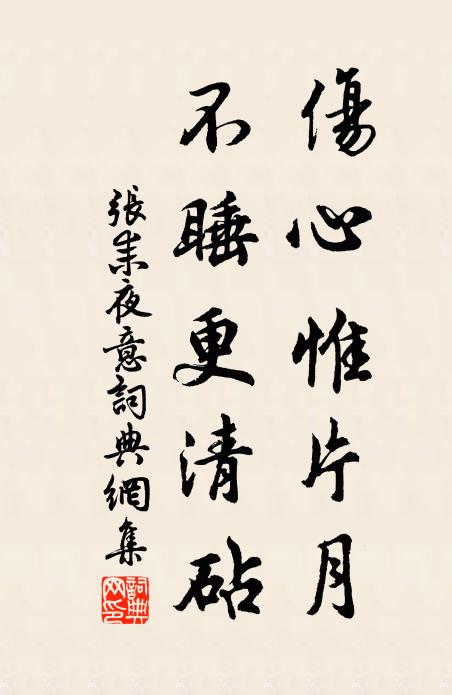 傷心惟片月
不睡更清砧
張耒夜意詞典網集
詞典网印